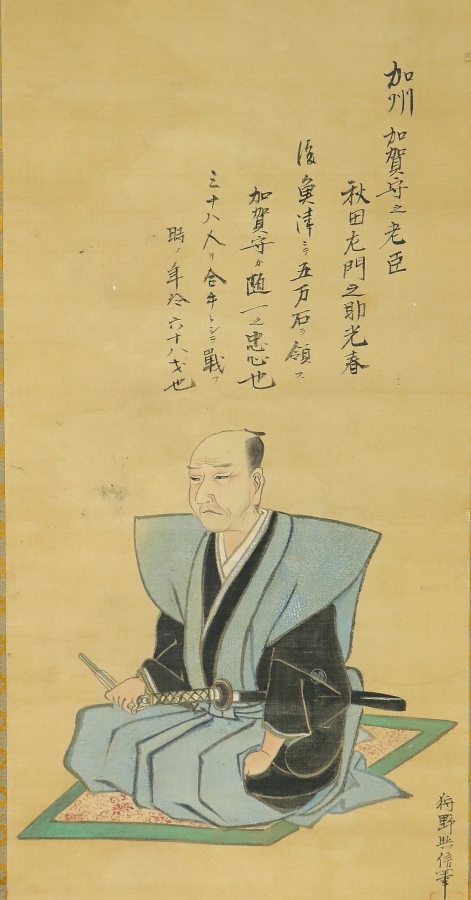 加州 加賀守之老臣
秋田左門之助光春
後魚津ニテ五万石ヲ領ス
加賀守カ随一之忠心也
三十八人ヲ合手トシテ戰フ
時ノ年令六十八才也
狩野興信筆